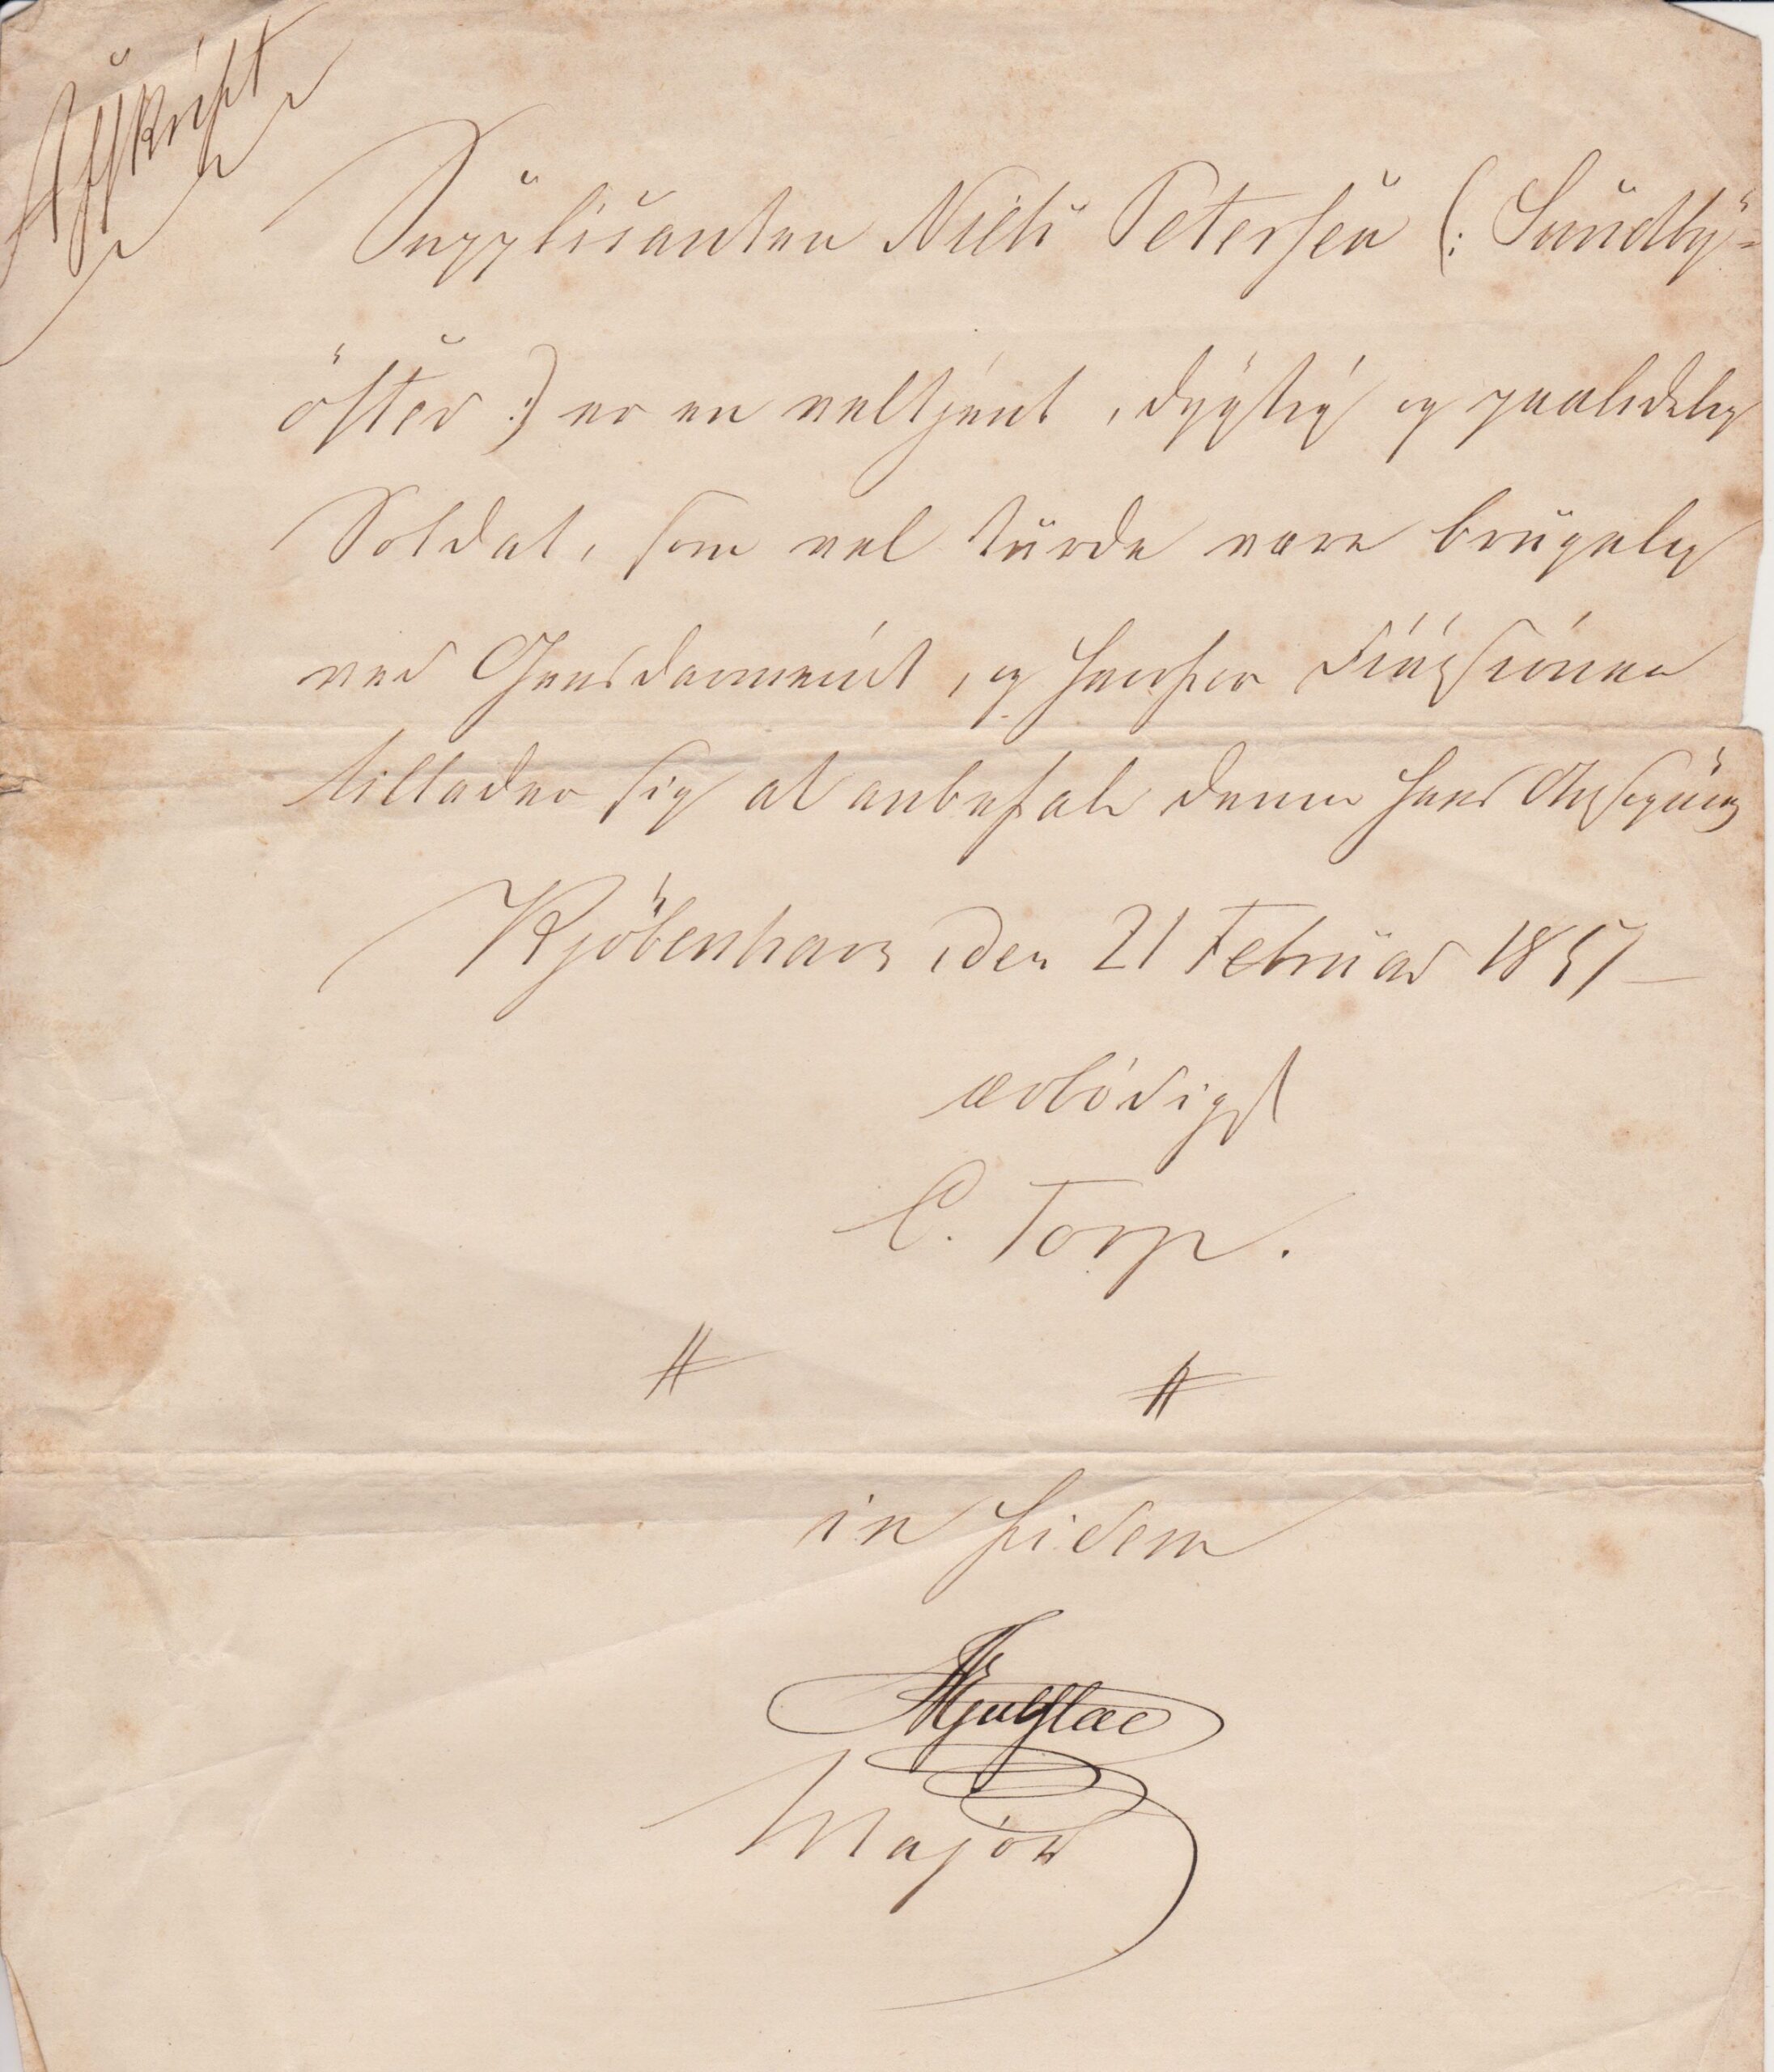 Afskrift
Supplicanten Niels Petersen (: Sundby=
öster :) er en veltjent, dygtig og paalidelig
Soldat, som vel turde være brugelig
ved Gensdarmeriet, og hvorfor Divisionen
tillader sig at anbefale denne hans Ansögning
Kjöbenhavn, den 21 Februar 1851
ærbödigst
C. Torp.
in fidem
Major